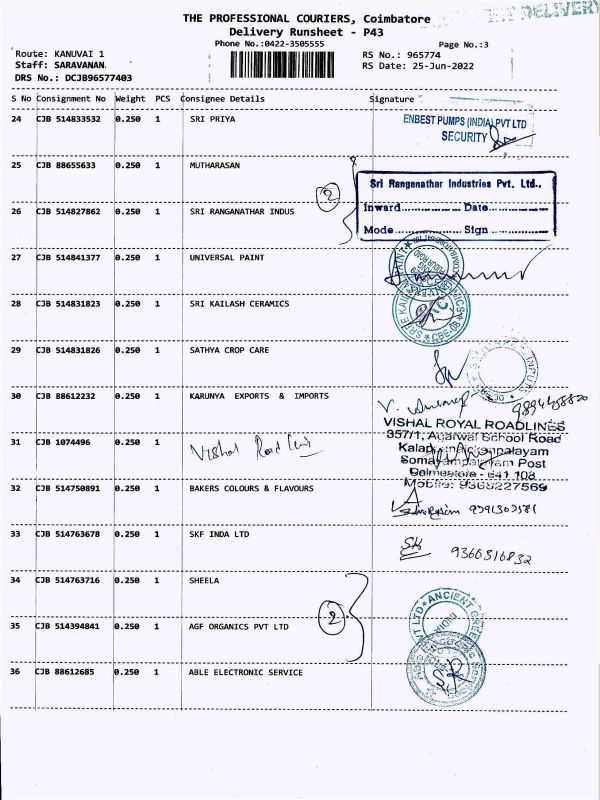 THE PROFESSIONAL COURIERS, Coimbatore
DELIVERY
Delivery Runsheet - P43
Phone No.:0422-3505555
Page No.:3
Route: KANUVAI 1
RS No.: 965774
Staff: SARAVANAN.
RS Date: 25-Jun-2022
DRS No.: DCJB96577403
S No Consignment No Weight PCS Consignee Details Signature
24 CJB 514833532 0.250 1 SRI PRIYA
ENBEST PUMPS (INDIA) PVT LTD
SECURITY
25 CJB 88655633 0.250 1 MUTHARASAN
Sri Ranganathar Industries Pvt. Ltd.,
2
26 CJB 514827862 0.250 1 SRI RANGANATHAR INDUS
Inward............... Date...............
Mode............... Sign ...............
27 CJB 514841377 0.250 1 UNIVERSAL PAINT
28 CJB 514831823 0.250 1 SRI KAILASH CERAMICS
29 CJB 514831826 0.250 1 SATHYA CROP CARE
30 CJB 88612232 0.250 1 KARUNYA EXPORTS & IMPORTS
VISHAL ROYAL ROADLINES
31 CJB 1074496 0.250 1 Vishal Road
357/1, Agarwal School Road
Somayampalayam Post
Coimbatore - 641 108
32 CJB 514750891 0.250 1 BAKERS COLOURS & FLAVOURS
Mobile: 9363227569
33 CJB 514763678 0.250 1 SKF INDA LTD
9360516832
34 CJB 514763716 0.250 1 SHEELA
2
35 CJB 514394841 0.250 1 AGF ORGANICS PVT LTD
36 CJB 88612685 0.250 1 ABLE ELECTRONIC SERVICE